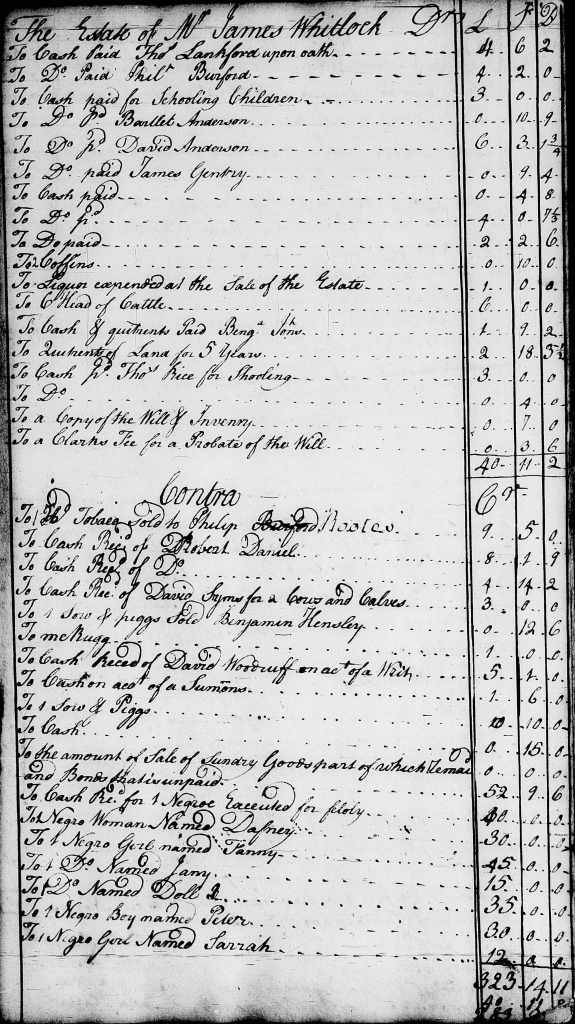 The Estate of Mr James Whitlock Dr L S D
To Cash Paid Thos Lankford upon oath 4 6 2
To Do Paid Phil Burford 4 2 0
To Cash paid for Schooling Children 3 0 0
To Do pd Bartlet Anderson 0 10 9
To Do pd David Anderson 6 3 1 3/4
To Do paid James Gentry 0 9 4
To Cash paid 0 4 8
To Do pd 4 0 7½
To Do paid 2 2 6
To 2 Coffins 0 10 0
To Liquor expended at the Sale of the Estate 1 0 0
To 6 Head of Cattle 6 0 0
To Cash & quitrents Paid Benga Johns 1 9 2
To Quitrents of Land for 5 Years 2 18 5½
To Cash pd Thos Rice for Shooling 3 0 0
To Do 0 4 0
To a Copy of the Will & Invenry 0 7 0
To a Clarks Fee for a Probate of the Will 0 3 6
40 11 2
Contra Cr
To 1 Hhd Tobaco Sold to Philip Rootes 9 5 0
To Cash Recd of Robert Daniel 8 1 9
To Cash Recd of Do 4 14 2
To Cash Recd of David Syms for 2 Cows and Calves 3 0 0
To 1 Sow & piggs Sold Benjamin Hensley 0 12 6
To mcRugg 1 0 0
To Cash Recd of David Woodruff on act of a Writ 5 1 0
To Cash on act of a Sumons 1 6 0
To 1 Sow & Piggs 0 10 0
To Cash 0 15 0
To the amount of Sale of Sundry Goods part of which 0 0 0
and Bonds that is unpaid 52 9 6
To Cash Recd for 1 Negroe Executed for felony 40 0 0
To 1 Negro Woman Named Dafney 30 0 0
To 1 Negro Girl named Fanny 45 0 0
To 1 Do Named Jany 15 0 0
To 1 Do Named Doll 35 0 0
To 1 Negro Boy named Peter 30 0 0
To 1 Negro Gerl Named Sarrah 12 0 0
323 14 11
40 11